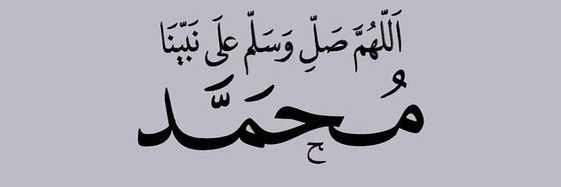 اَللّٰهُمَّ صَلِّ وَسَلِّم علَى نَبيِّنَا
مُحمَدَّ